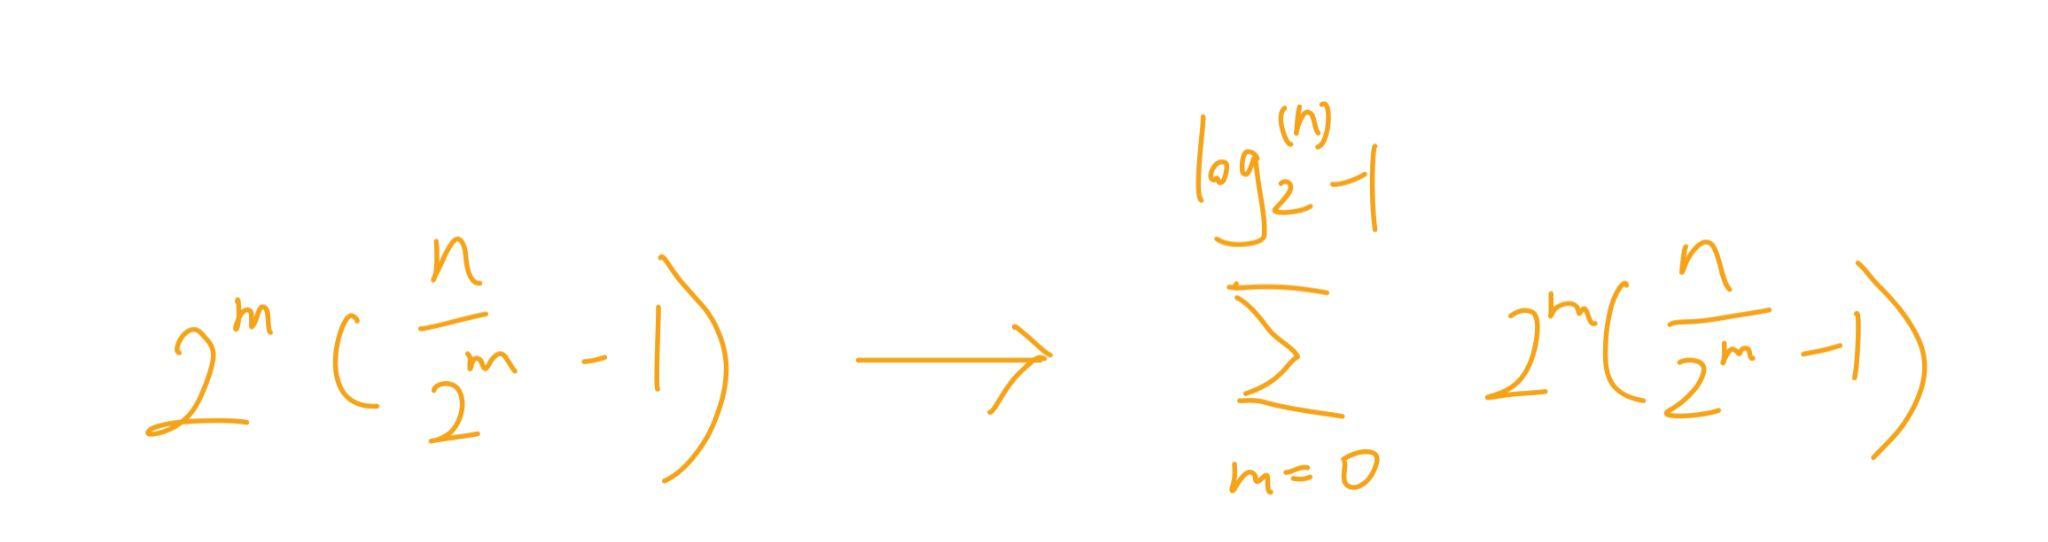 2^m (n/2^m - 1) → ∑_{m=0}^{log_2^{(n)} - 1} 2^m (n/2^m - 1)